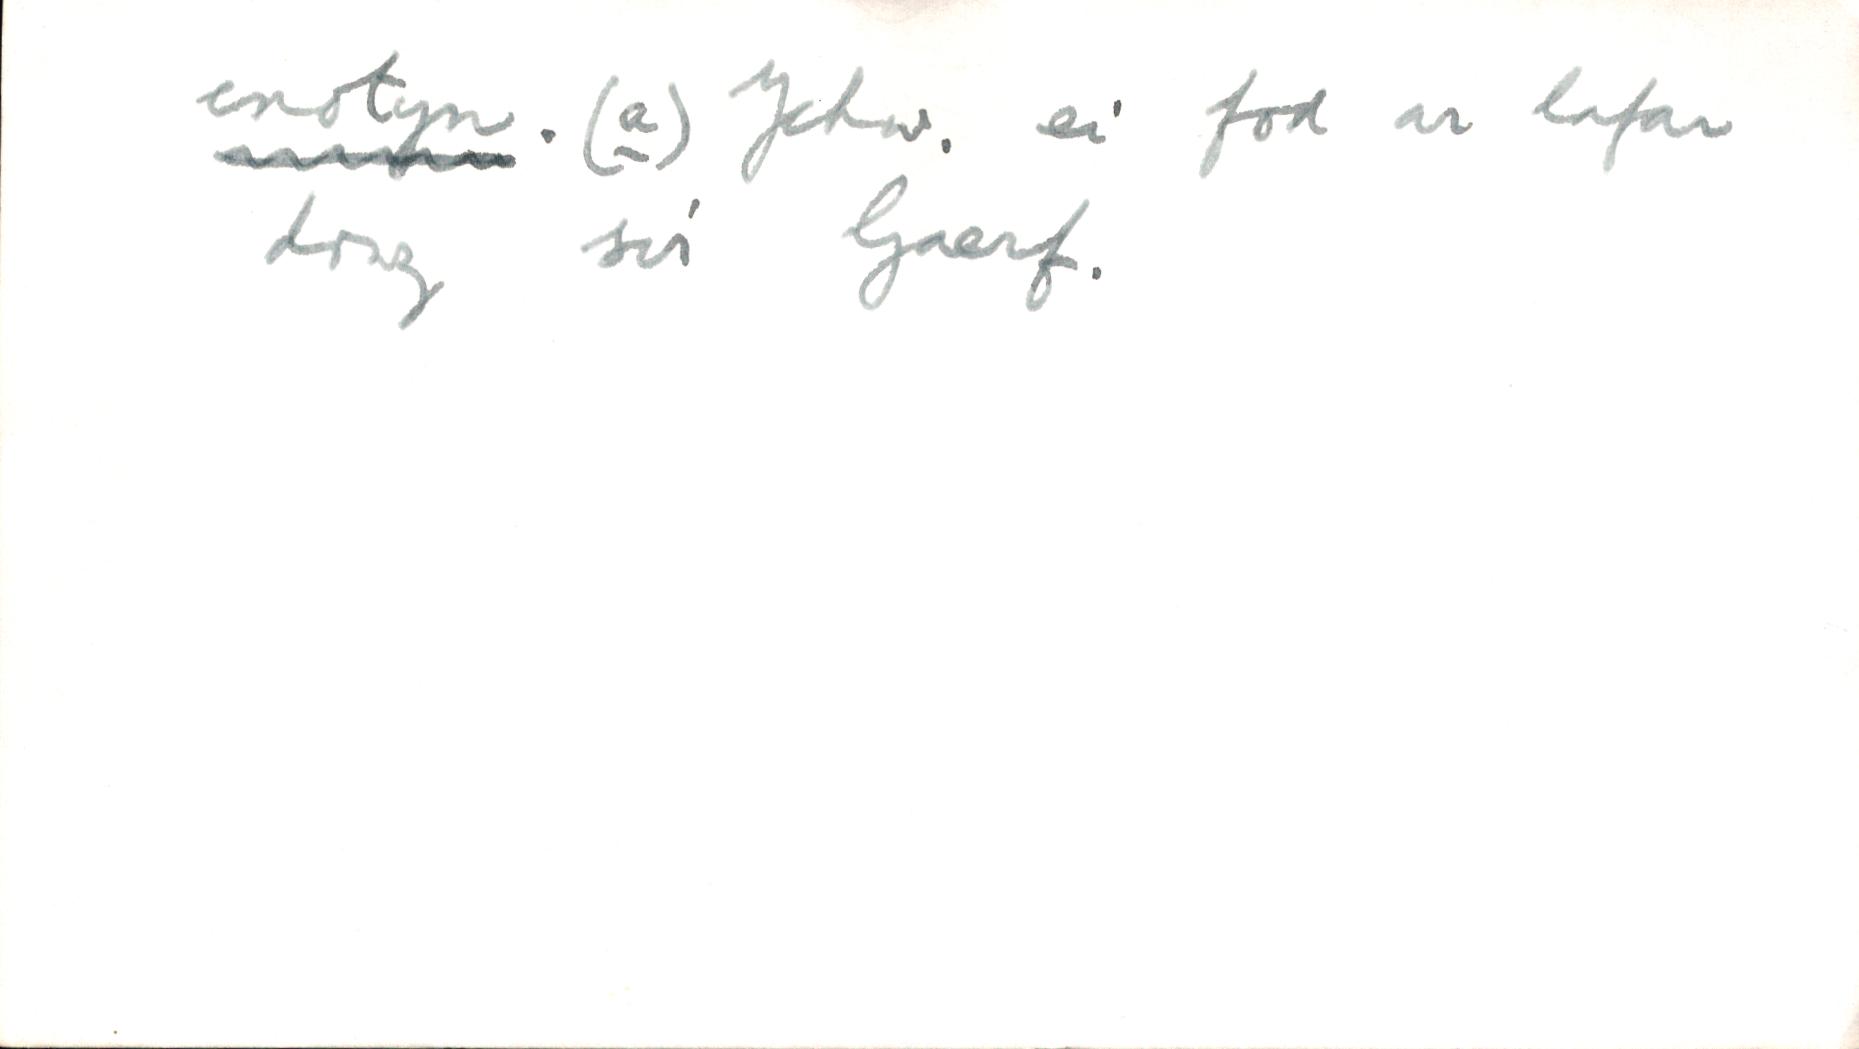 cnotyn. (a) Ychw. ei fod ar lafar
drwy sir Gaerf.